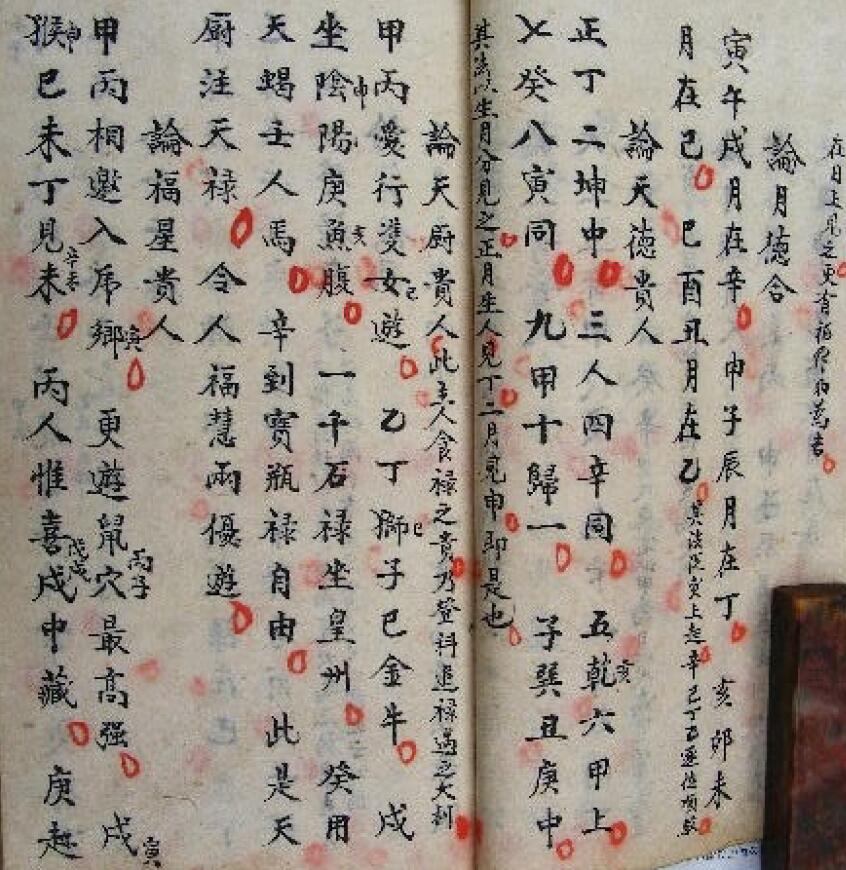 在日上見之更有福
論月德合
寅午戌月在辛 申子辰月在丁 亥卯未
月在己 巳酉丑月在乙 其法從寅上起辛己丁乙逐位順數
論天德貴人
正丁二坤中 三人四辛同 五乾亥六甲上
乄癸八寅同 九甲十歸一 子巽丑庚中
其法以生月分見之正月生人見丁二月見申即是也
論天廚貴人此主人食祿之貴乃登科進祿遇之大利
甲丙愛行雙女巳遊 乙丁獅巳子巳金牛 戍
坐陰申陽庚魚亥腹 一千石祿坐皇州 癸用
天蝎壬人馬 辛到寶瓶祿自由 此是天
廚注天祿 令人福慧兩優遊
論福星貴人
甲丙相邀入乕鄉寅 更遊鼠穴丙子最高強 戍寅
猴申巳未丁見未辛未 丙人惟喜戍戊戌中藏 庚趂